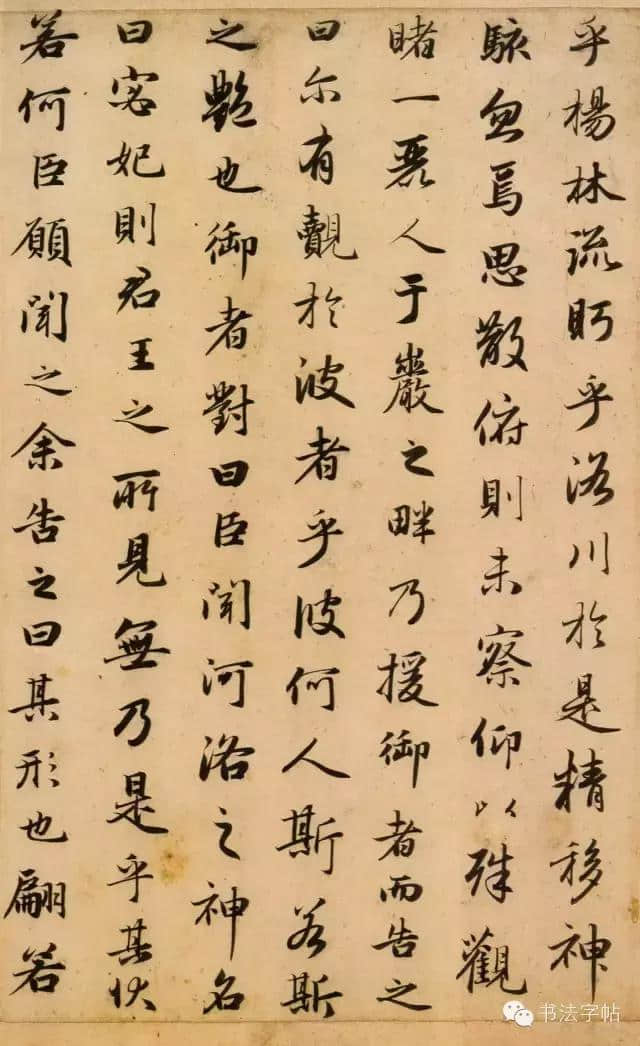 乎楊林流眄乎洛川於是精移神
駭忽焉思散俯則未察仰以殊觀
睹一麗人于巖之畔乃援御者而告之
曰尒有覿於彼者乎彼何人斯若斯
之艷也御者對曰臣聞河洛之神名
曰宓妃則君王之所見無乃是乎其狀
若何臣願聞之余告之曰其形也翩若
书法字帖